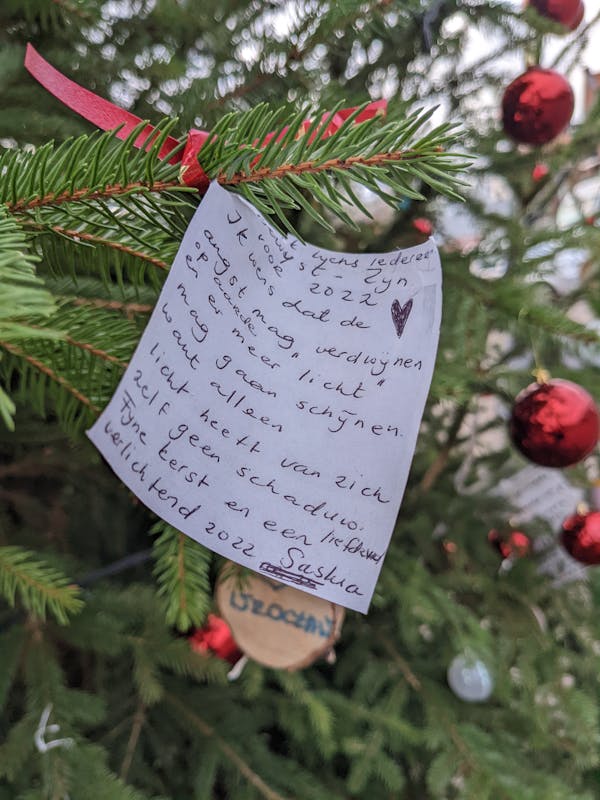 wens Iedereen
- Zyn
voor 2022
Ik wens dat de
angst mag verdwijnen
op aarde
en er meer „licht"
mag gaan schijnen.
want alleen
licht heeft van zich
zelf geen schaduw.
Fyne kerst en een liefdevol
verlichtend 2022 Saskia